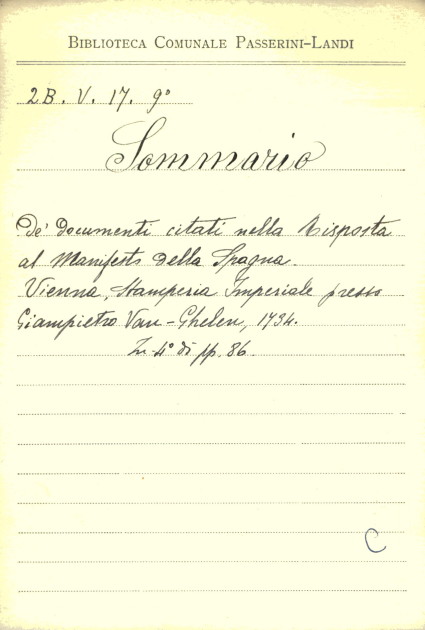 Biblioteca Comunale Passerini-Landi
2B. V. 17. 9°
Sommario
De' documenti citati nella Risposta
al Manifesto della Spagna.
Vienna, Stamperia Imperiale presso
Giampietro Van-Ghelen, 1734.
In-4° di pp. 86.
C